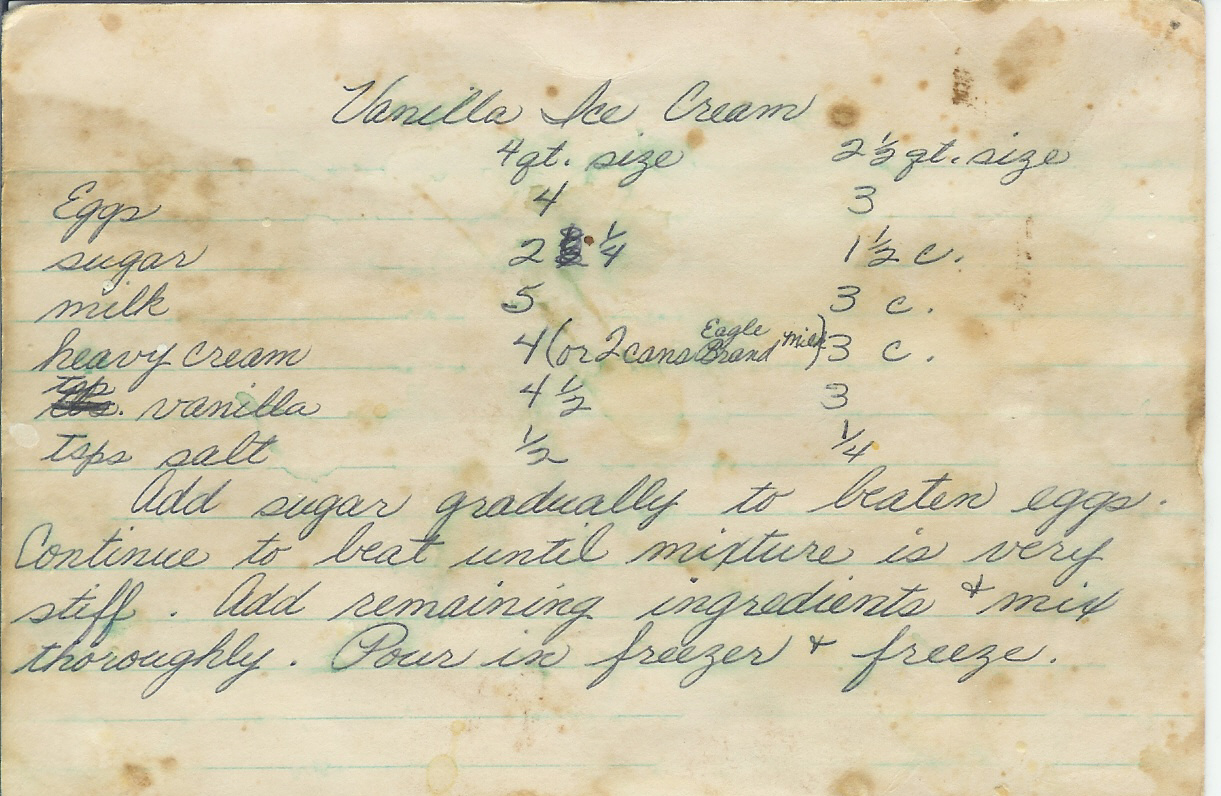 Vanilla Ice Cream
4qt. size 2 1/2 qt. size
Eggs 4 3
sugar 2 1/4 1 1/2 c.
milk 5 3 c.
heavy cream 4 (or 2 cans Eagle Brand milk) 3 c.
tsp vanilla 4 1/2 3
tsps salt 1/2 1/4
Add sugar gradually to beaten eggs.
Continue to beat until mixture is very
stiff. Add remaining ingredients + mix
thoroughly. Pour in freezer + freeze.